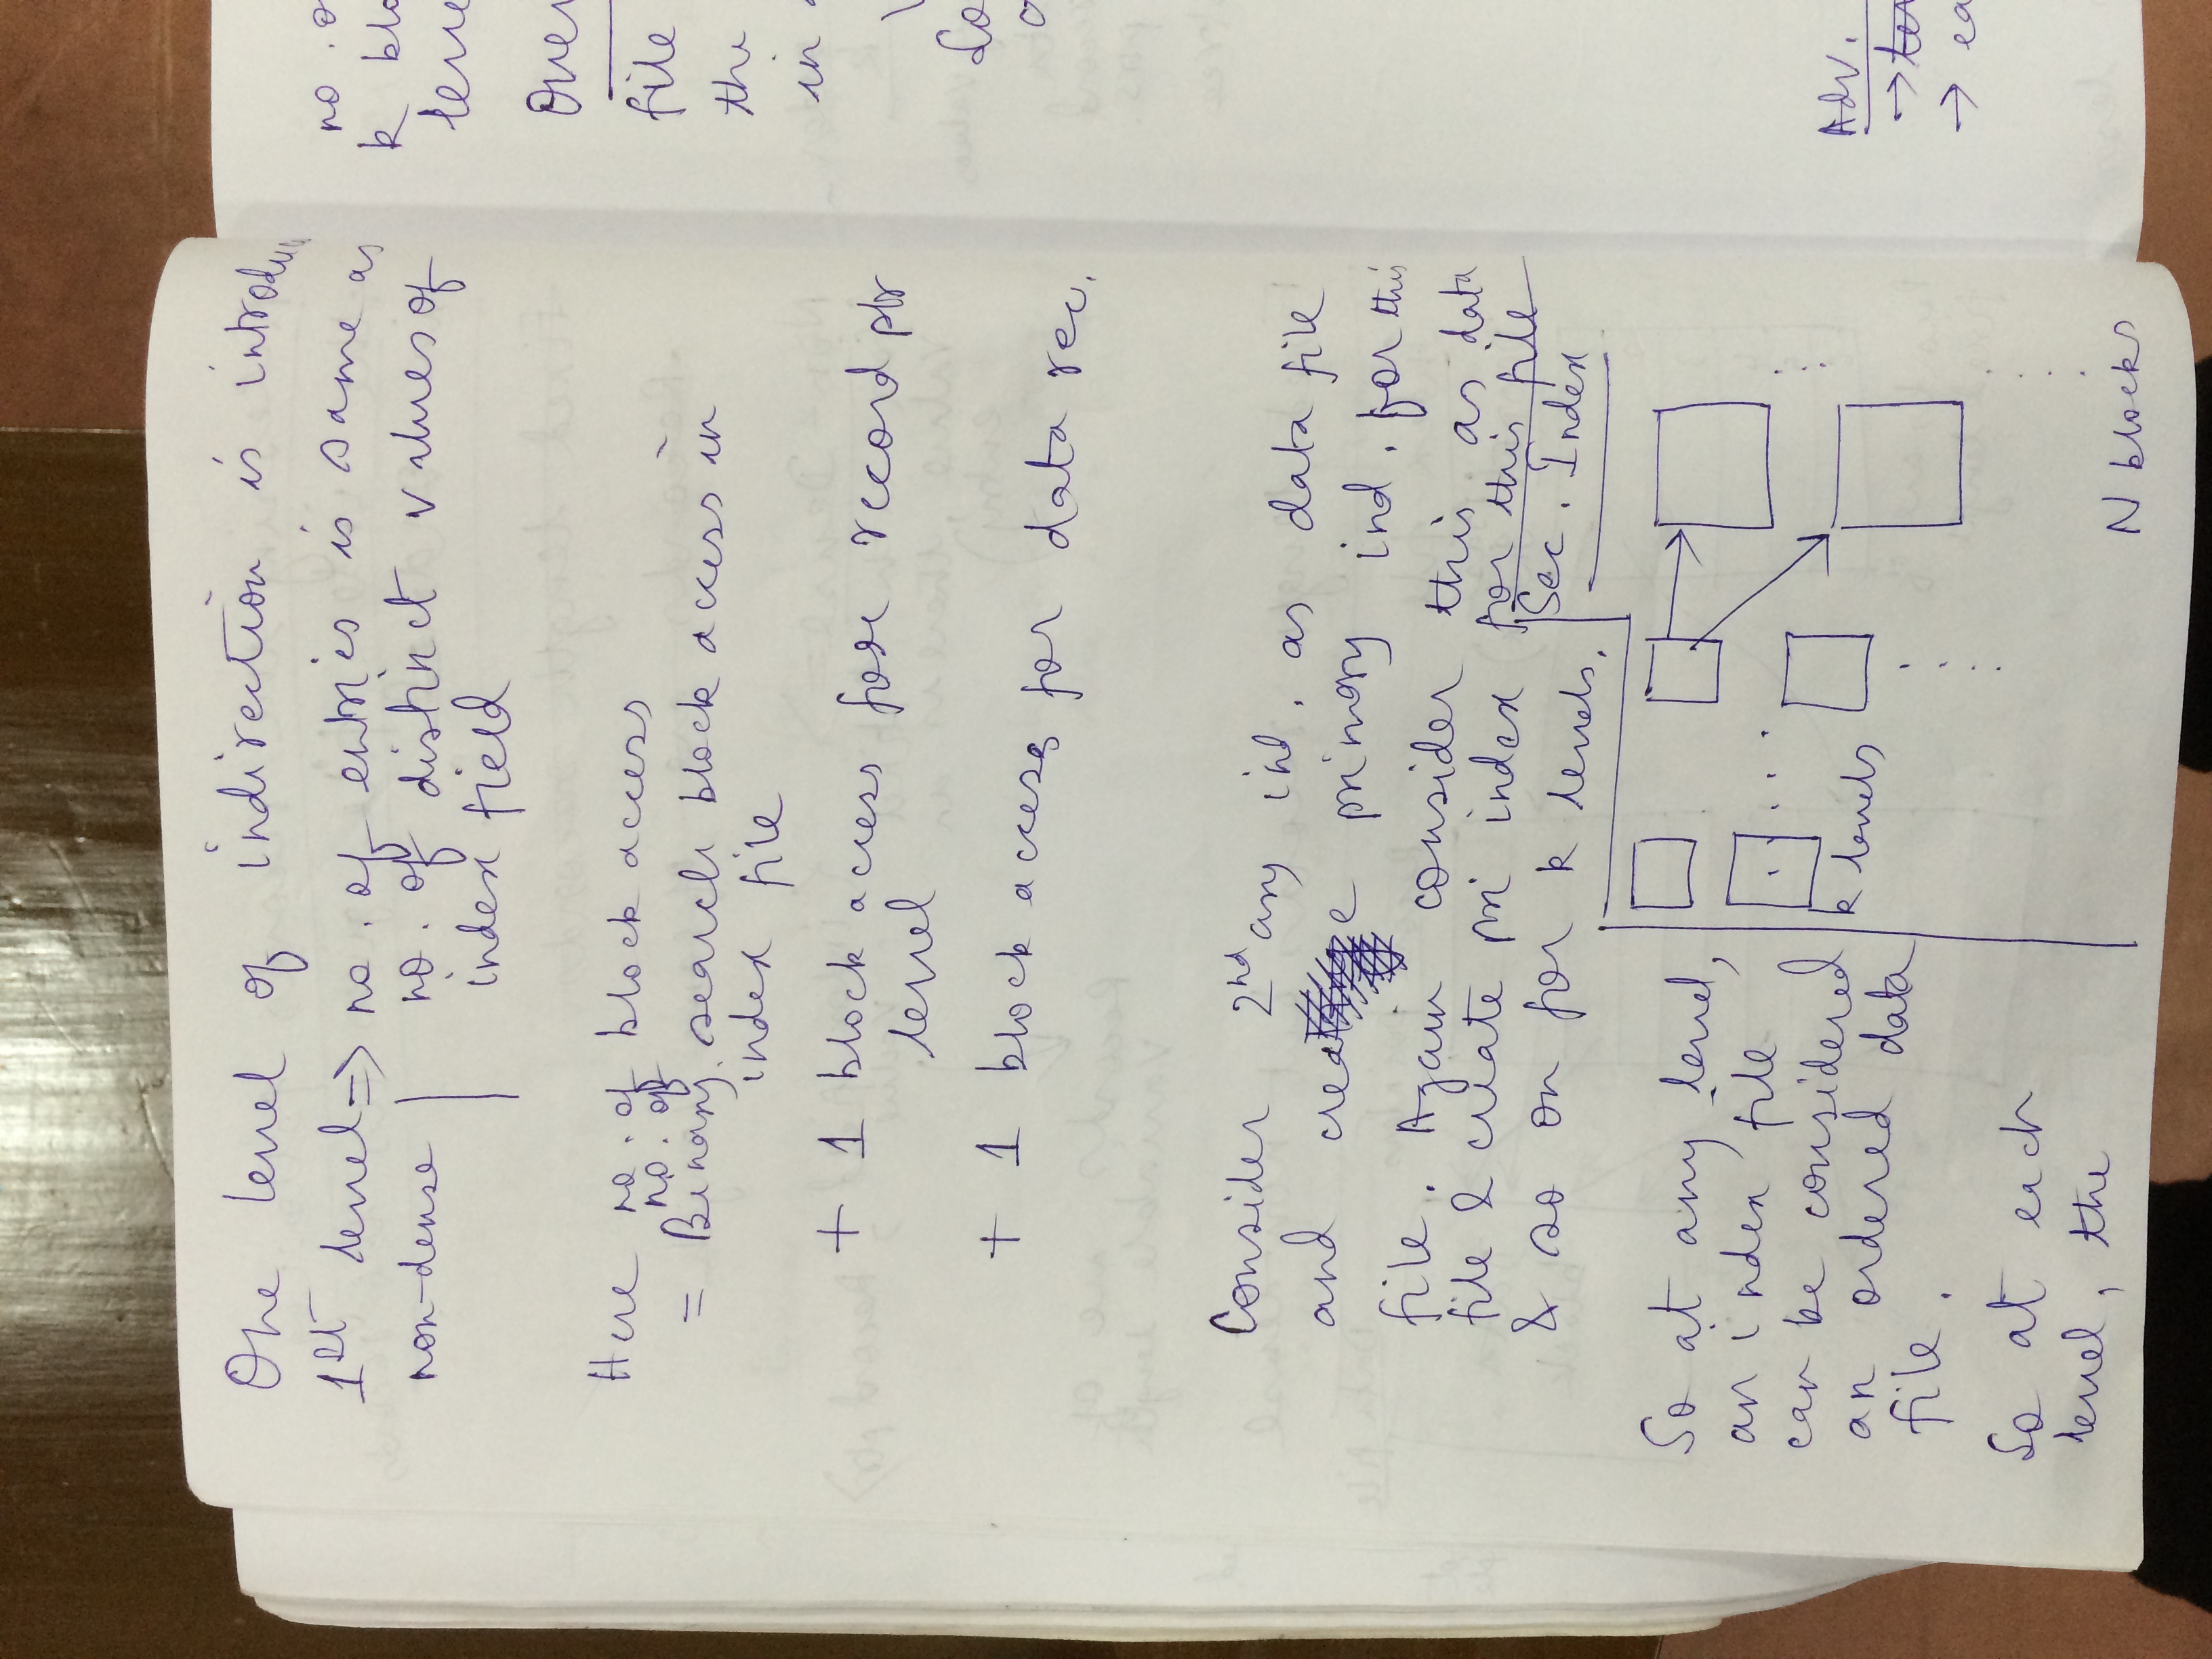 One level of indirection is introdu
1st level => no. of entries is same as
non-dense | no. of distinct values of
index field
Here no. of block access
no. of
= Binary search block access in
index file
+ 1 block access for record ptr
level
+ 1 block access for data rec.
Consider 2nd ary ind. as data file
and create primary ind. for this
file. Again consider this as data
file & create pri index for this file
& so on for k levels.
Sec. Index
So at any level,
an index file
can be considered
an ordered data
file.
So at each
level, the
k levels
N blocks
no. o
k blo
leve
Over
file
the
in
Adv.
→
→ ea